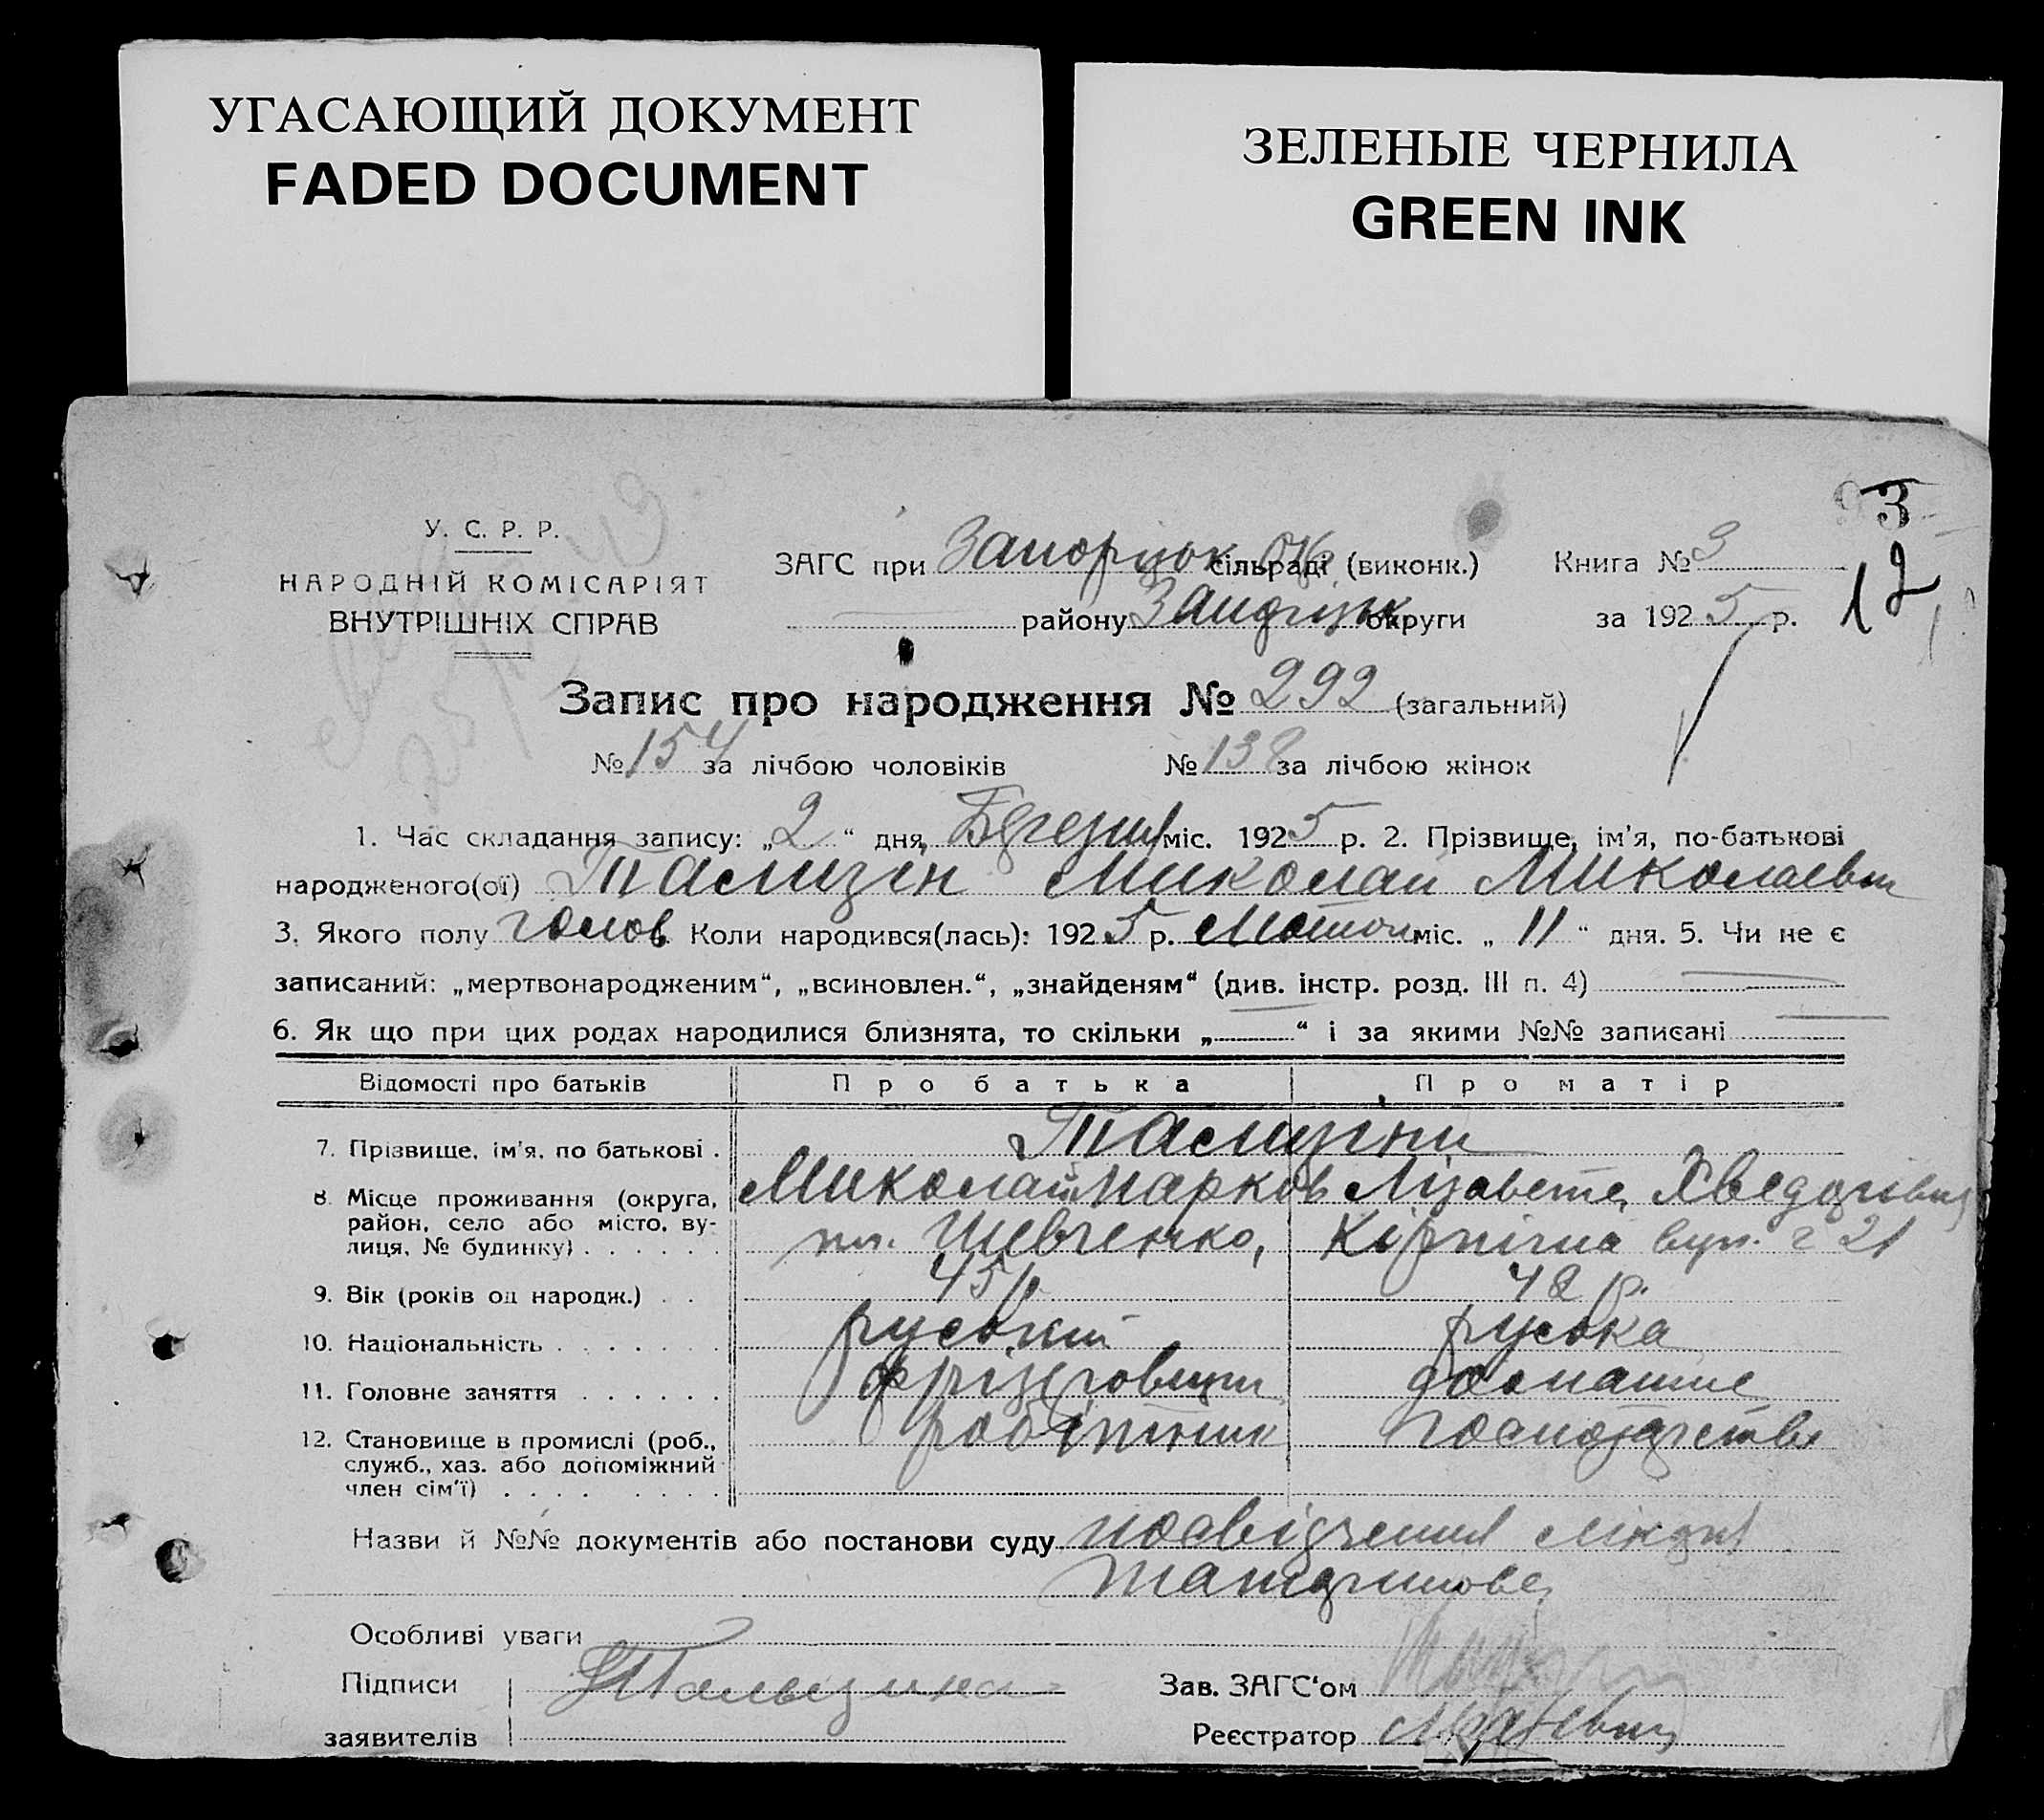 УГАСАЮЩИЙ ДОКУМЕНТ
FADED DOCUMENT
ЗЕЛЕНЫЕ ЧЕРНИЛА
GREEN INK
У. С. Р. Р.
НАРОДНІЙ КОМІСАРІЯТ
ВНУТРІШНІХ СПРАВ
ЗАГС при Запорізьк Ок. сільраді (виконк.)
району Запорізьк округи
Книга № 3
за 1925 р.
3
12
Запис про народження № 292 (загальний)
№ 154 за лічбою чоловіків № 138 за лічбою жінок
1. Час складання запису: „2“ дня, Березня міс. 1925 р. 2. Прізвище, ім'я, по-батькові
народженого(ої) Тализін Миколай Миколаевич
3. Якого полу чолов. Коли народився(лась): 1925 р. Лютого міс. „11“ дня. 5. Чи не є
записаний: „мертвонародженим“, „всиновлен.“, „знайденям“ (див. інстр. розд. III п. 4)
6. Як що при цих родах народилися близнята, то скільки „ “ і за якими №№ записані
Відомості про батьків Про батька Про матір
7. Прізвище, ім'я, по батькові . Тализіни
Миколай Марков Лізавета Хведорівна
8. Місце проживання (округа,
район, село або місто, ву-
лиця, № будинку) . . . . . . пл. Шевченко, Кірпічна вул. 21
9. Вік (років од народж.) . . 45 р. 42 р.
10. Національність . . . . . . . руський руська
11. Головне заняття . . . . . . домашнє
12. Становище в промислі (роб.,
служб., хаз. або допоміжний
член сім'ї) . . . . . . . . робітник господарство
Назви й №№ документів або постанови суду посвідчення лікаря
Особливі уваги
Підписи
заявителів
Зав. ЗАГС'ом
Реєстратор